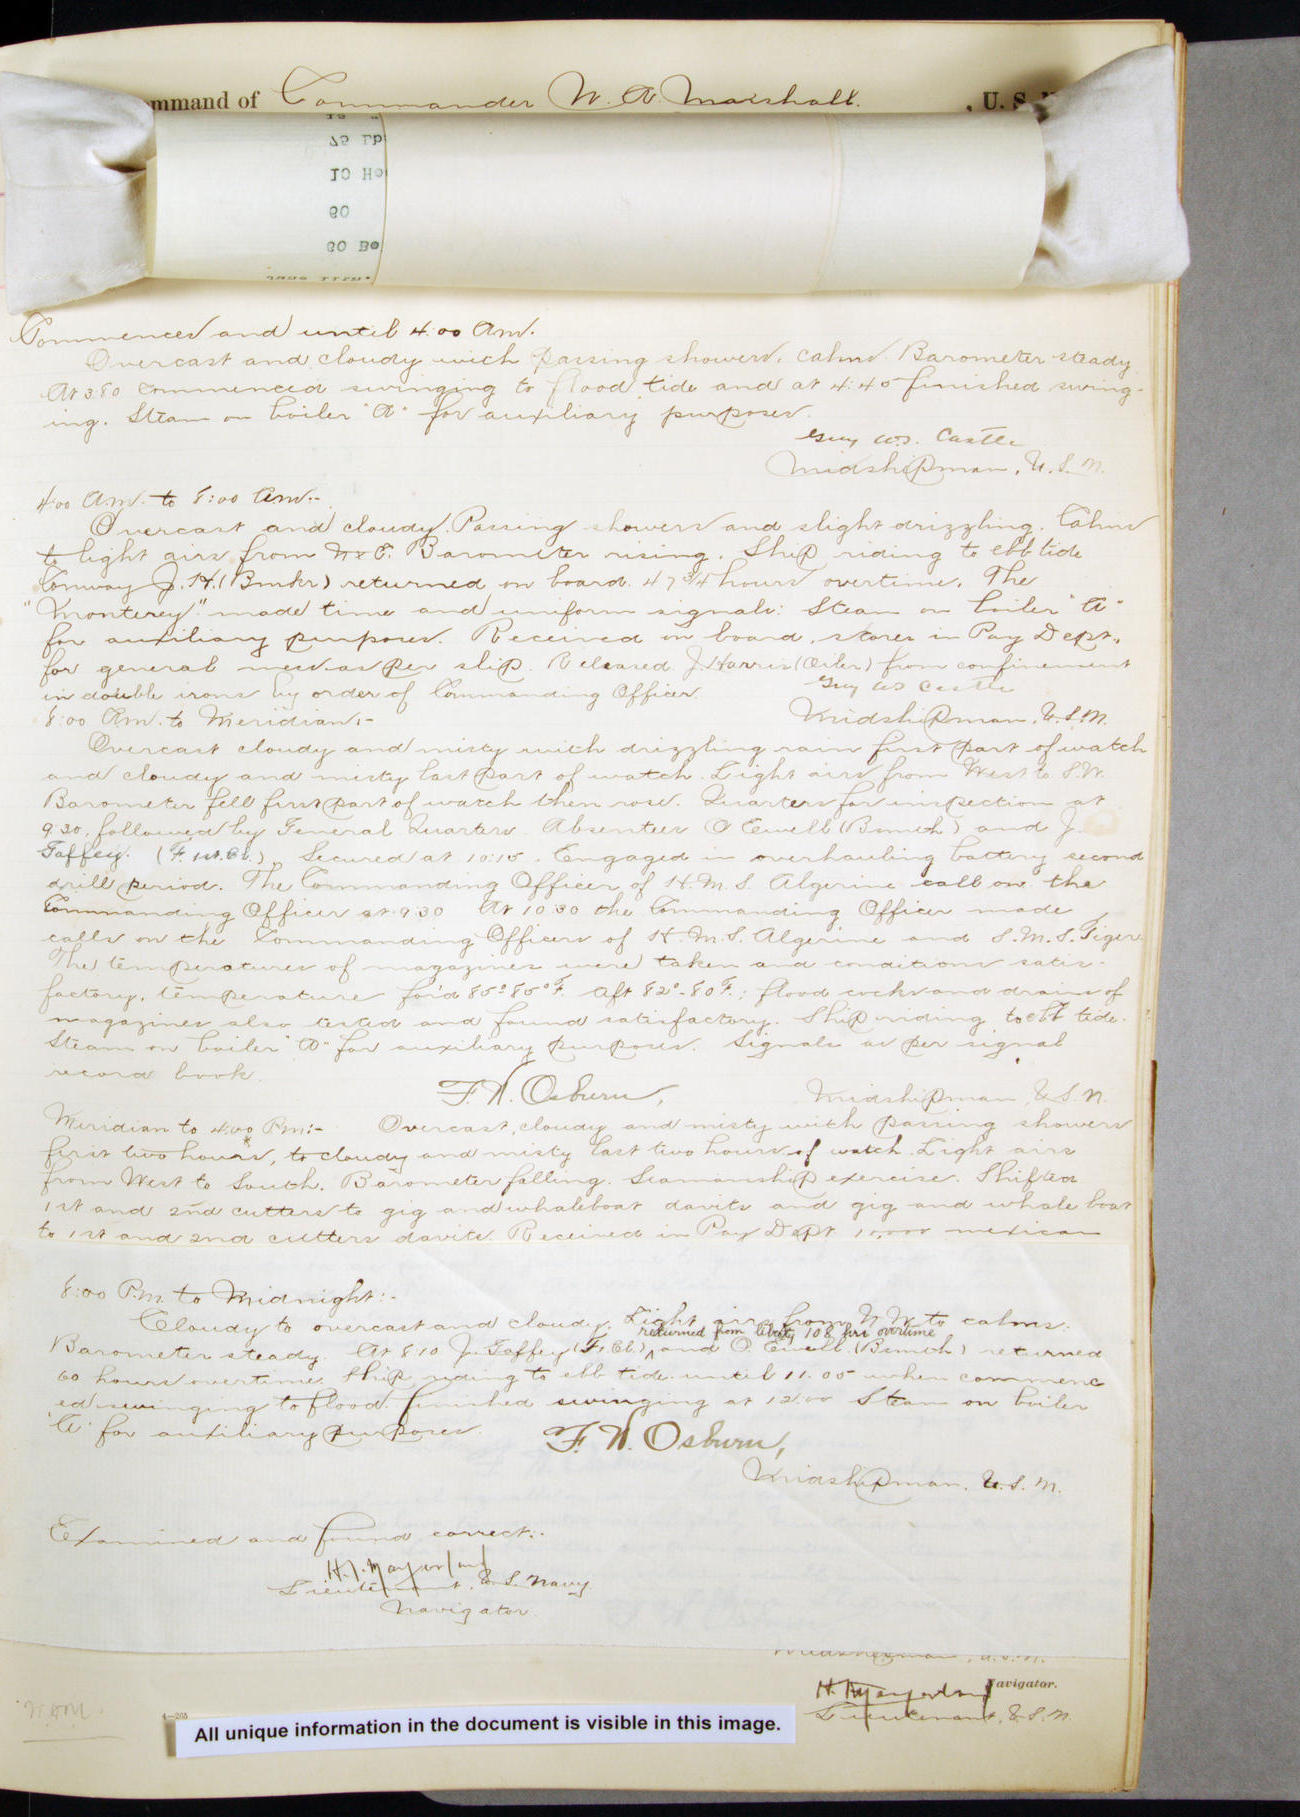 ommand of Commander W. A. Marshall. , U. S. N
75 Lb
10 Ho
60
60 Bo
Commences and until 4:00 A.m.
Overcast and cloudy with passing showers. calms. Barometer steady
At 3:80 commenced swinging to flood tide and at 4:45 finished swing-
ing. Steam on boiler "A" for auxiliary purposes.
Guy W.S. Castle
Midshipman, U.S.N.
4:00 A.m. to 8:00 A.m.:-
Overcast and cloudy. Passing showers and slight drizzling. Calms
to light airs from N x E. Barometer rising. Ship riding to ebb tide
Conway J.H. (Bmkr) returned on board 47 3/4 hours overtime. The
"Monterey" made time and uniform signals: Steam on boiler "A"
for auxiliary purposes. Received on board, stores in Pay Dept.,
for general mess as per slip. Released J. Harris (Oiler) from confinement
in double irons by order of Commanding Officer.
Guy WS Castle
8:00 A.m. to Meridian:-
Midshipman, U.S.N.
Overcast cloudy and misty with drizzling rain first part of watch
and cloudy and misty last part of watch. Light airs from West to S.W.
Barometer fell first part of watch then rose. Quarters for inspection at
9:30, followed by General Quarters. Absentees O Ewell (Bsmith) and J.
Taffey. (F. 1st. Cl.) Secured at 10:15. Engaged in overhauling battery second
drill period. The Commanding Officer of H.M.S. Algerine call on the
Commanding Officer at 9:30 At 10:30 the Commanding Officer made
calls on the Commanding Officers of H.M.S. Algerine and S.M.S. Tiger
The temperatures of magazines were taken and conditions satis-
factory, temperature for'd 85°85°F. Aft 82°-80°F.; flood cocks and drains of
magazines also tested and found satisfactory. Ship riding to ebb tide.
Steam on boiler "A" for auxiliary purposes. Signals as per signal
record book.
F. N. Osburn, Midshipman, U.S.N.
Meridian to 4:00 P.m:- Overcast, cloudy and misty with passing showers
first two hours, to cloudy and misty last two hours of watch. Light airs
from West to South. Barometer falling. Seamanship exercise. Shifted
1st and 2nd cutters to gig and whaleboat davits and gig and whale boat
to 1st and 2nd cutters davits. Received in Pay Dept 10,000 mexican
8:00 P.m. to Midnight:-
Cloudy to overcast and cloudy. Light airs from N.W. to calms.
returned from liberty 108 hrs overtime
Barometer steady. At 8:10 J. Taffey (F. 1 Cl.) ^ and O. Ewell (Bsmith) returned
60 hours overtime. Ship riding to ebb tide until 11:05 when commenc
ed swinging to flood. finished swinging at 12:00 Steam on boiler
"A" for auxiliary purposes.
F. N. Osburn,
Midshipman, U.S.N.
Examined and found correct:-
Lieutenant, U.S. Navy
Navigator.
Midshipman, U.S.N.
Navigator.
Lieutenant, U.S.N.
4—205
All unique information in the document is visible in this image.